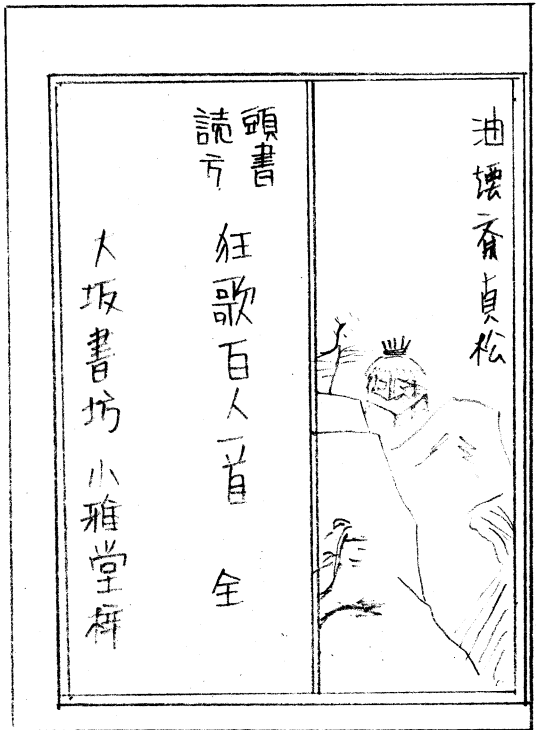 油縁斎貞松
頭書
読方
狂歌百人一首 全
大坂書坊 小雅堂梓